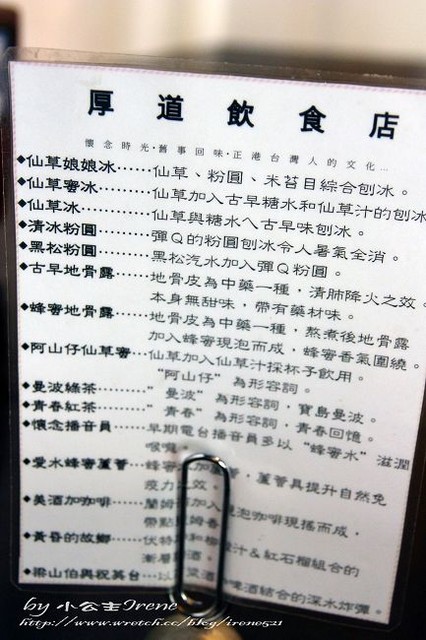 厚道飲食店
懷念時光‧舊事回味‧正港台灣人的文化…
◆仙草娘娘冰……仙草、粉圓、米苔目綜合刨冰。
◆仙草蜜冰……仙草加入古早糖水和仙草汁的刨冰
◆仙草冰……仙草與糖水ㄟ古早味刨冰。
◆清冰粉圓……彈Q的粉圓刨冰令人暑氣全消。
◆黑松粉圓……黑松汽水加入彈Q粉圓。
◆古早地骨露……地骨皮為中藥一種，清肺降火之效。
本身無甜味，帶有藥材味。
◆蜂蜜地骨露……地骨皮為中藥一種，熬煮後地骨露
加入蜂蜜現泡而成，蜂蜜香氣圍繞。
◆阿山仔仙草蜜…仙草加入仙草汁採杯子飲用。
“阿山仔”為形容詞。
◆曼波綠茶……“曼波”為形容詞，寶島曼波。
◆青春紅茶……“青春”為形容詞，青春回憶。
◆懷念播音員…早期電台播音員多以“蜂蜜水”滋潤
喉嚨
◆愛水蜂蜜蘆薈…蜂蜜 加 ，蘆薈具提升自然免
疫力之效
◆美酒加咖啡…蘭姆 加入 現泡咖啡現搖而成，
帶點 姆香
◆黃昏的故鄉…伏特 和 汁＆紅石榴組合的
漸層 酒。
◆梁山伯與祝英台…以 菜酒 啤酒結合的深水炸彈。
by 小公主Irene
http://www.wretch.cc/blog/irene521